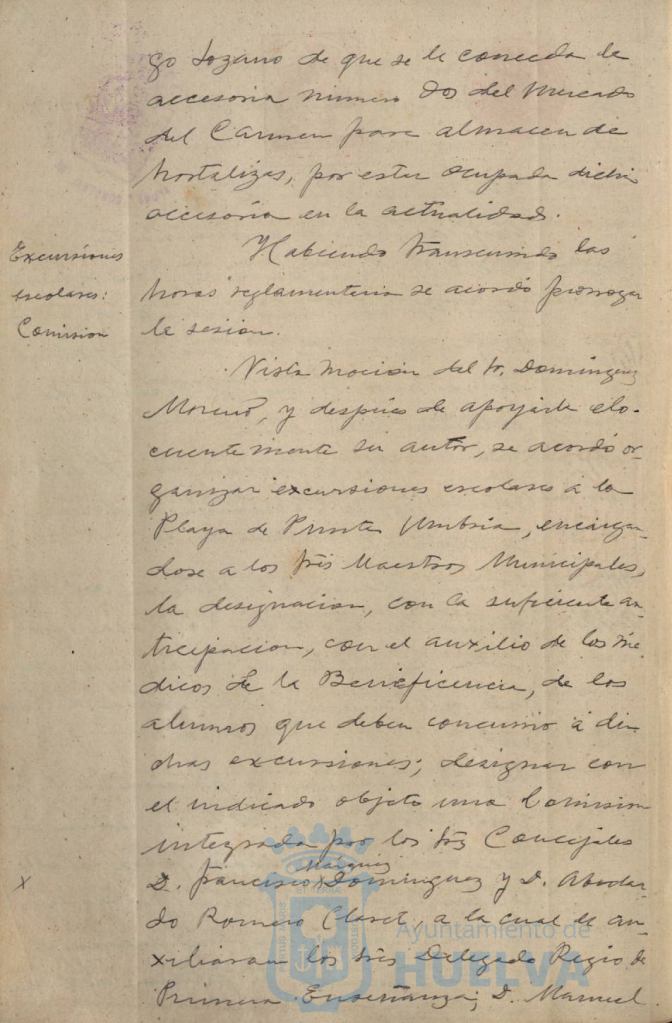 go Lozano de que se le conceda la
accesoria número dos del Mercado
del Carmen para almacen de
hortalizas, por estar ocupada dicha
accesoria en la actualidad.
Excursiones
escolares:
Comision
Habiendo transcurrido las
horas reglamentarias se acordó prorrogar
la sesion.
Vista mocion del Sr. Dominguez
Moreno, y despues de apoyarla elo-
cuentemente su autor, se acordó or-
ganizar excursiones escolares a la
Playa de Punta Umbria, encargan-
dose a los Srs Maestros Municipales,
la designacion, con la suficiente an-
ticipacion, con el auxilio de los me-
dicos de la Beneficencia, de los
alumnos que deben concurrir a di-
chas excursiones; designar con
el indicado objeto una Comision
integrada por los Srs Concejales
X
D. Francisco Dominguez y D. Abelar-
Márquez
do Romero Claret, a la cual
auxiliaran los Srs Delegado Regio de
Primera Enseñanza; D. Manuel
Ayuntamiento de
HUELVA